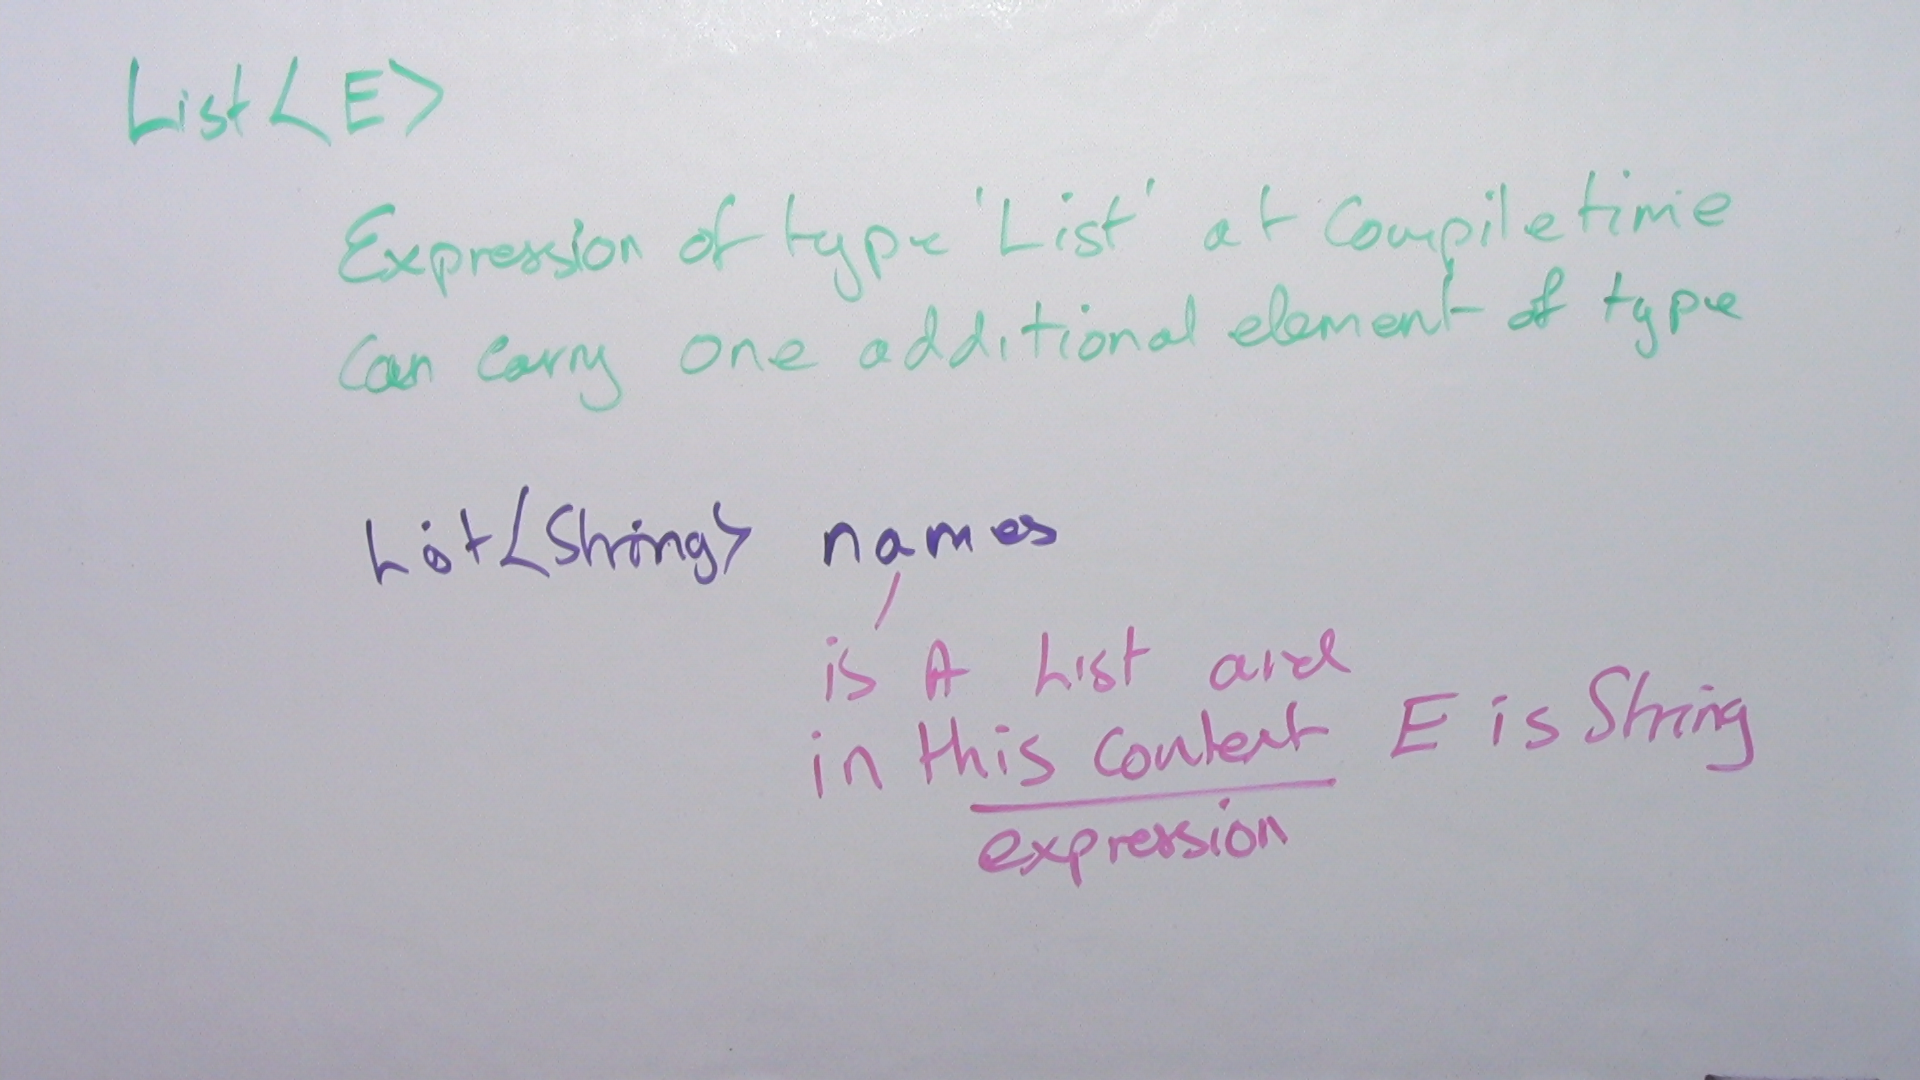 List<E>
Expression of type 'List' at Compiletime
can carry one additional element of type
List<String> names
is A List and
in this context E is String
expression